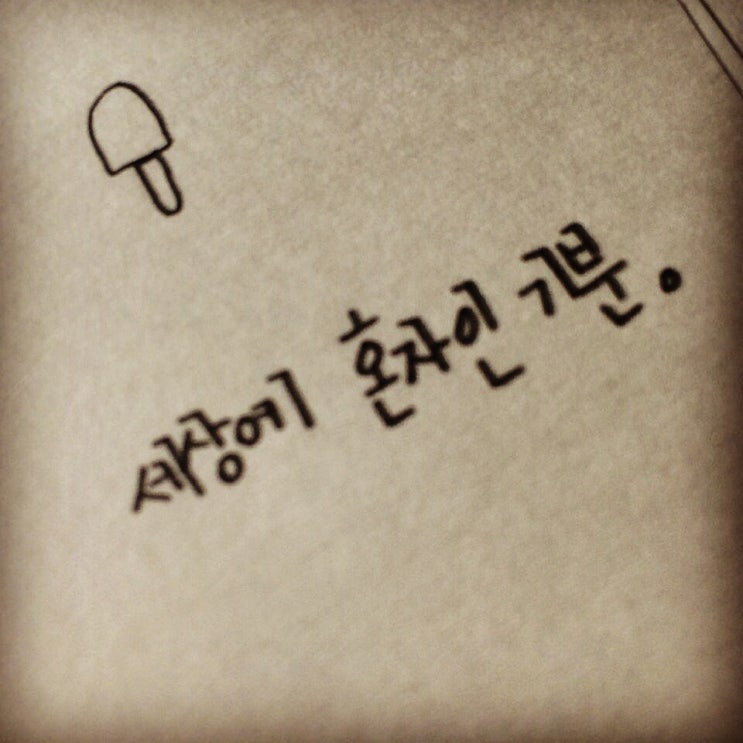 세상에 혼자인 기분.